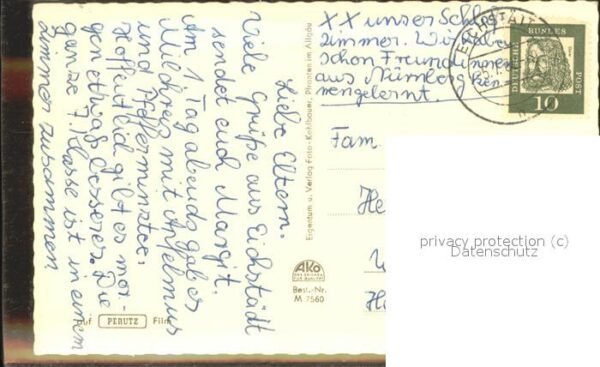 Liebe Eltern.
Viele Grüße aus Eichstädt
sendet euch Margit.
Am 1 Tag abends gab es
Milchreis mit Apfelmus
und Pfefferminztee.
Hoffentlich gibt es mor-
gen etwas besseres. Die
ganze 7. Klasse ist in einem
Zimmer zusammen
XX unser Schlaf
zimmer. Wir haben
schon Freundinnen
aus Nürnberg ken
nengelernt.
Eigentum u. Verlag Foto-Kohlbauer, Pfronten im Allgäu
AKO
Best.-Nr.
M 7560
auf PERUTZ Film
EICHSTÄTT
DEUTSCHE BUNDES POST
10
Fam
He
privacy protection (c)
Datenschutz